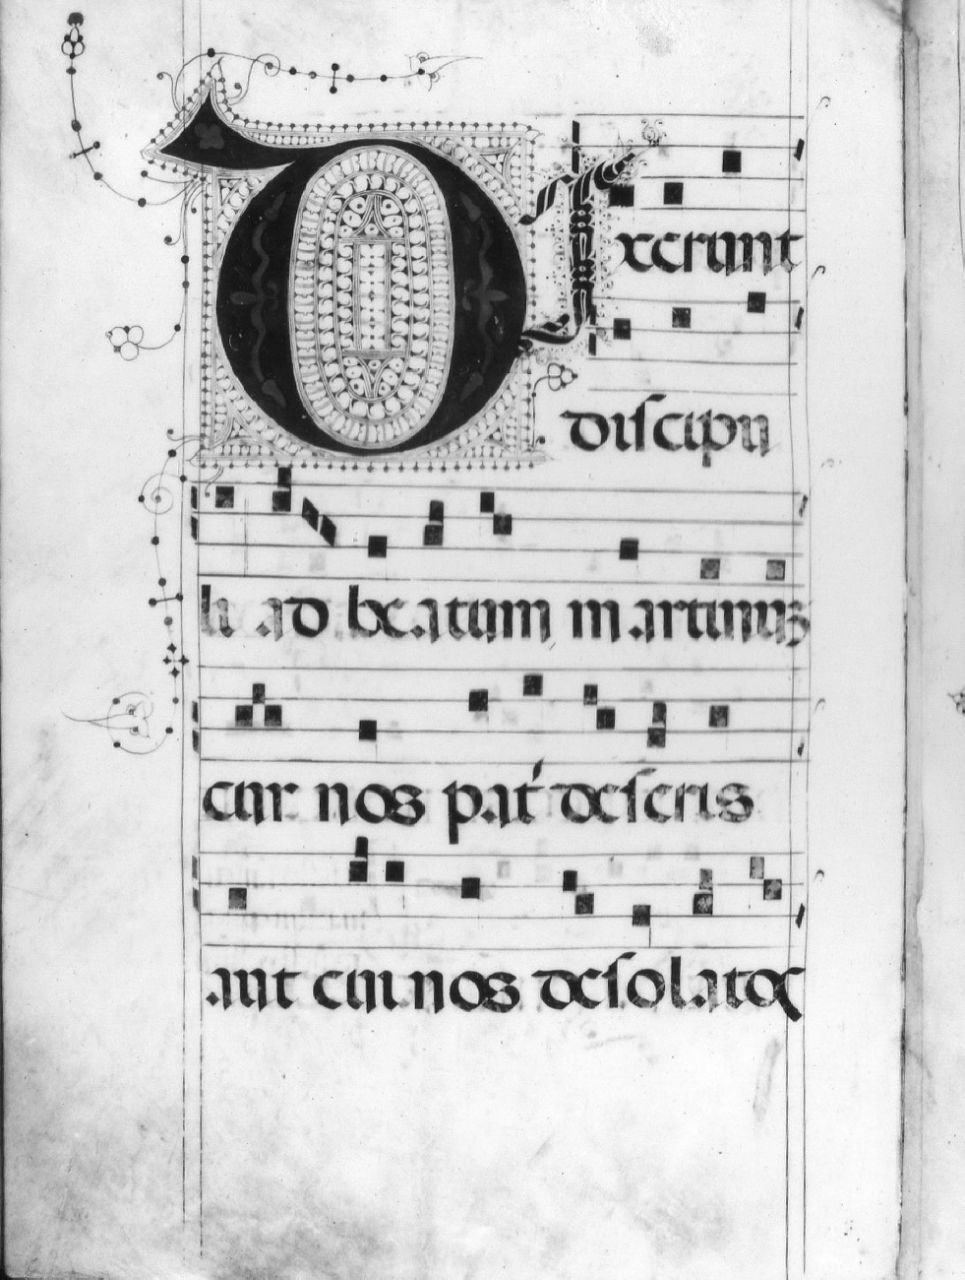 DIxerunt
discipu
li ad beatum martinuz
cur nos pat̓ deseris
aut cui nos desolatos